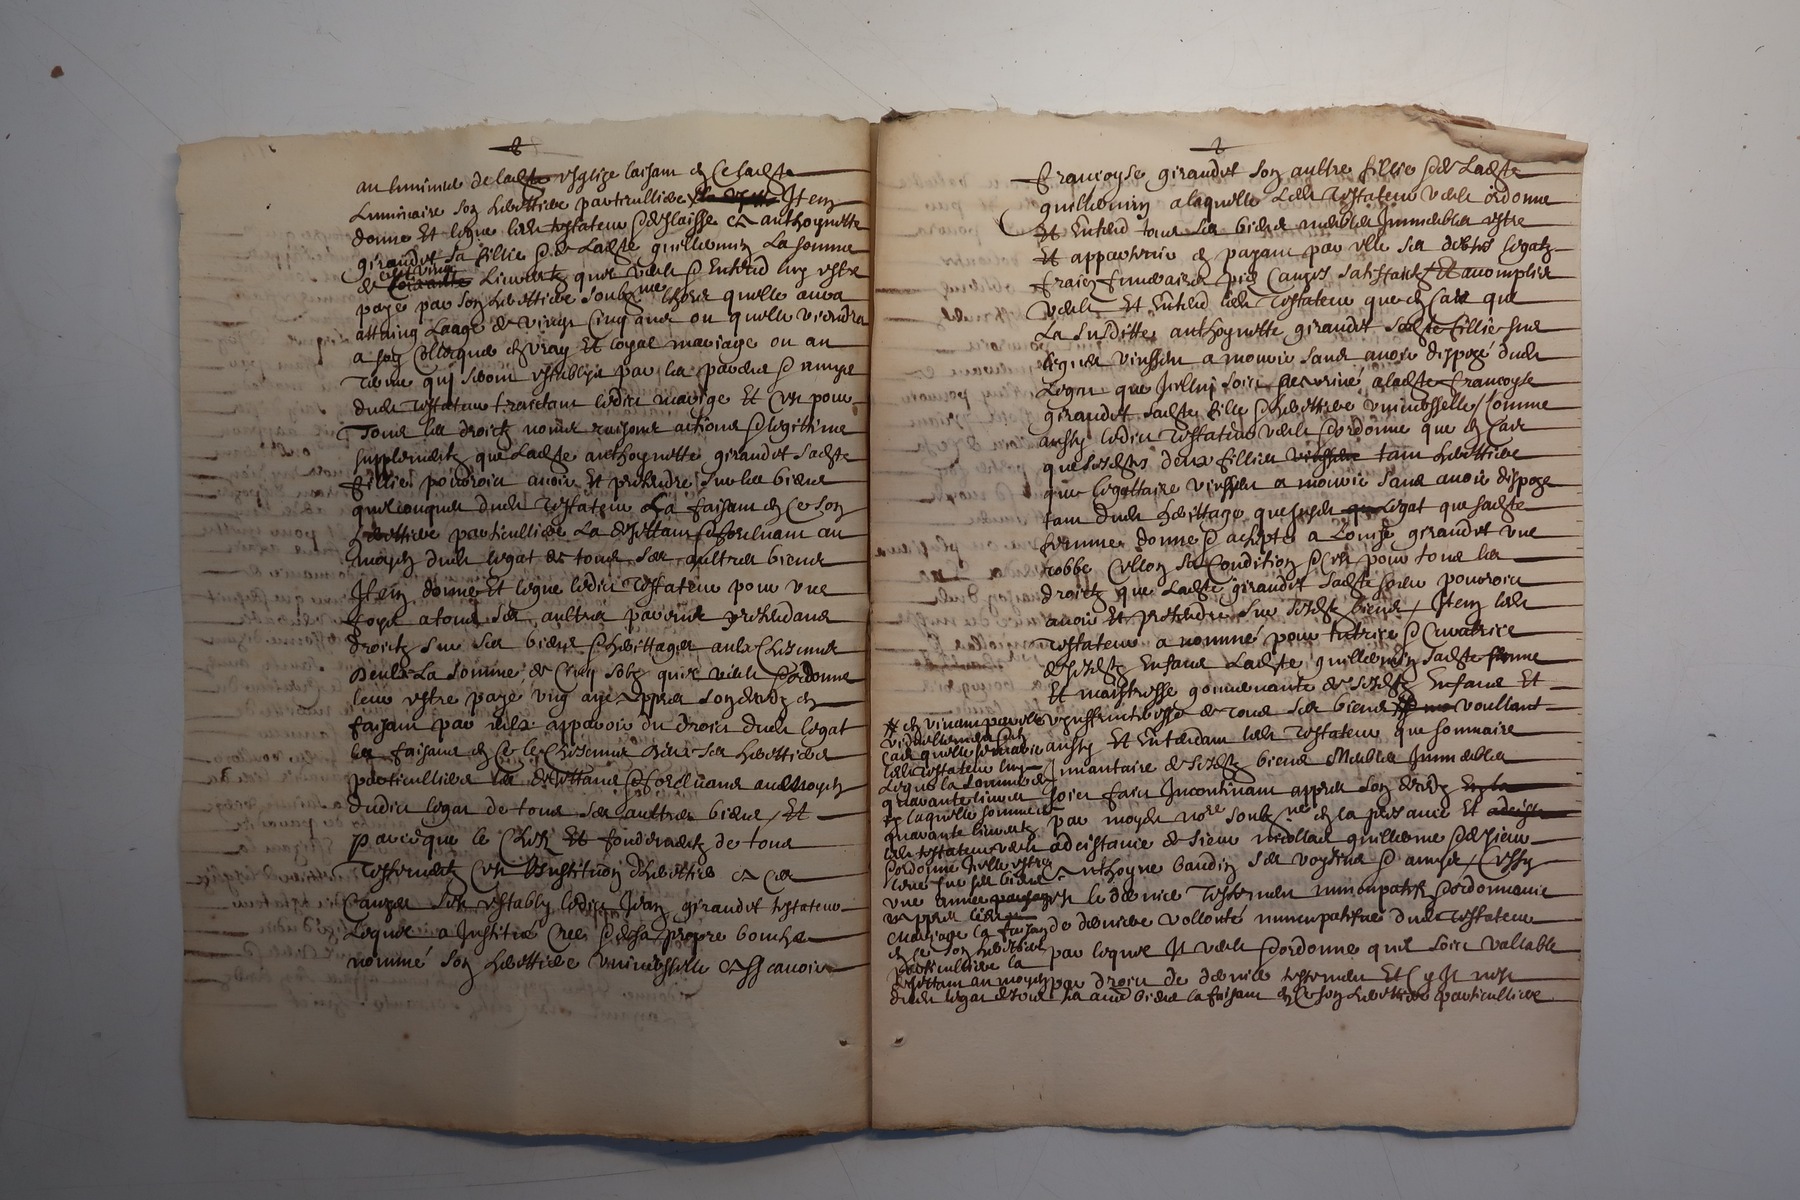 au luminaire de ladte esglize faisant en ce ladte
luminaire son heritiere particulliere Item
donne et legue ledt testateur delaisse a anthoynette
giraudet sa fillie et de ladte guillermin la somme
de cent vingt livres que veult et entend luy estre
payé par son heritiere soubznee lhors quelle aura
attaing laage de vingt cinq ans ou quelle viendra
a soy collocquer en vray et loyal mariage ou au
terme qui seroit establye par les parens et amys
dudt testateur traictant ledict mariage et ce pour
tous les droictz noms raisons actions et legitime
supplement que ladte anthoynette giraudet sadte
fillie pouroit avoir et pretendre sur les biens
quelconques dudt testateur la faisant en ce son
heritiere particulliere la desjettant et forcluant au
moyen dudt legat de tous ses aultres biens
Item donne et legue ledict testateur pour une
foys a tous ses aultres parens pretendans
droictz sur ses biens et heritages a ung chescung
deulx la somme de cinq solz quil veult et ordonne
leur estre payé ung an appres son decedz en
faisant par eulx apparoir du droict dudt legat
les faisans en ce le chescung deux ses heritiers
particulliers les dejettans et forcluans au moyen
dudict legat de tous ses aultres biens / et
parce que le chefz et fondement de tous
testementz est linstitution dheritier a ces
causes sest establly ledict Jean giraudet testateur
lequel a institué créé et de sa propre bouche
nommé son heritiere universelle assavoir
françoyse giraudet son aultre fillie et de ladte
guillermin a laquelle ledt testateur veult ordonne
et entend tous ses biens meubles immeubles estre
et appartenir en payant par elle ses debtes legatz
fraiez funeraires pies causes satisfaictz et accomplir
veult et entend ledt testateur que en cas que
la susditte anthoynette giraudet sadte fillie sus
leguée vinssent a mourir sans avoir disposé dudt
legat que Icelluy soit a ladte françoyse
giraudet sadte fille et heritiere universelle / comme
aussy ledict testateur veult et ordonne que en cas
que sesdtes deux fillies tant heritiere
que legattaire vinssent a mourir sans avoir disposé
tant dudt heritage que susdt legat que sadte
femme donne et achepte a Louise giraudet une
robbe cellon sa condition et ce pour tous les
droictz que ladte giraudet sadte pouroit
avoir et pretendre sur sesdts biens / Item ledt
testateur a nommé pour tutrice et curatrice
de sesdts enfans ladte guillermin sadte femme
et maistresse gouvernante de sesdts enfans et
usuffruictresse de tous ses biens voullant
aussy et entendant ledt testateur que sommaire
inventaire de sesdts biens meubles immeubles
soict faict incontinant appres son decedz
par moyd nore soubzne en la presance et
adcistance de sieur nicollas guillerme et de sieur
anthoyne baudin ses voysins et amys / cessy
est le dernier testement nuncupatif et ordonnance
de derniere vollonté nuncupatifve dudt testateur
par lequel Il veult et ordonne quil soict vallable
par droict de dernier testement et sy Il nest
# en vivant par elle
viduellement et en
cas quelle se remarie
ledt testateur luy
legue la somme de
quarante livres
laquelle somme de
quarante livres
ledt testateur veult
et ordonne Icelle estre
une année
appres ledt
mariage la faisant
en ce son heritiere
particulliere la
desjettant au moyen
dudt legat de tous sesdts biens la faisant en ce son heritiere particulliere